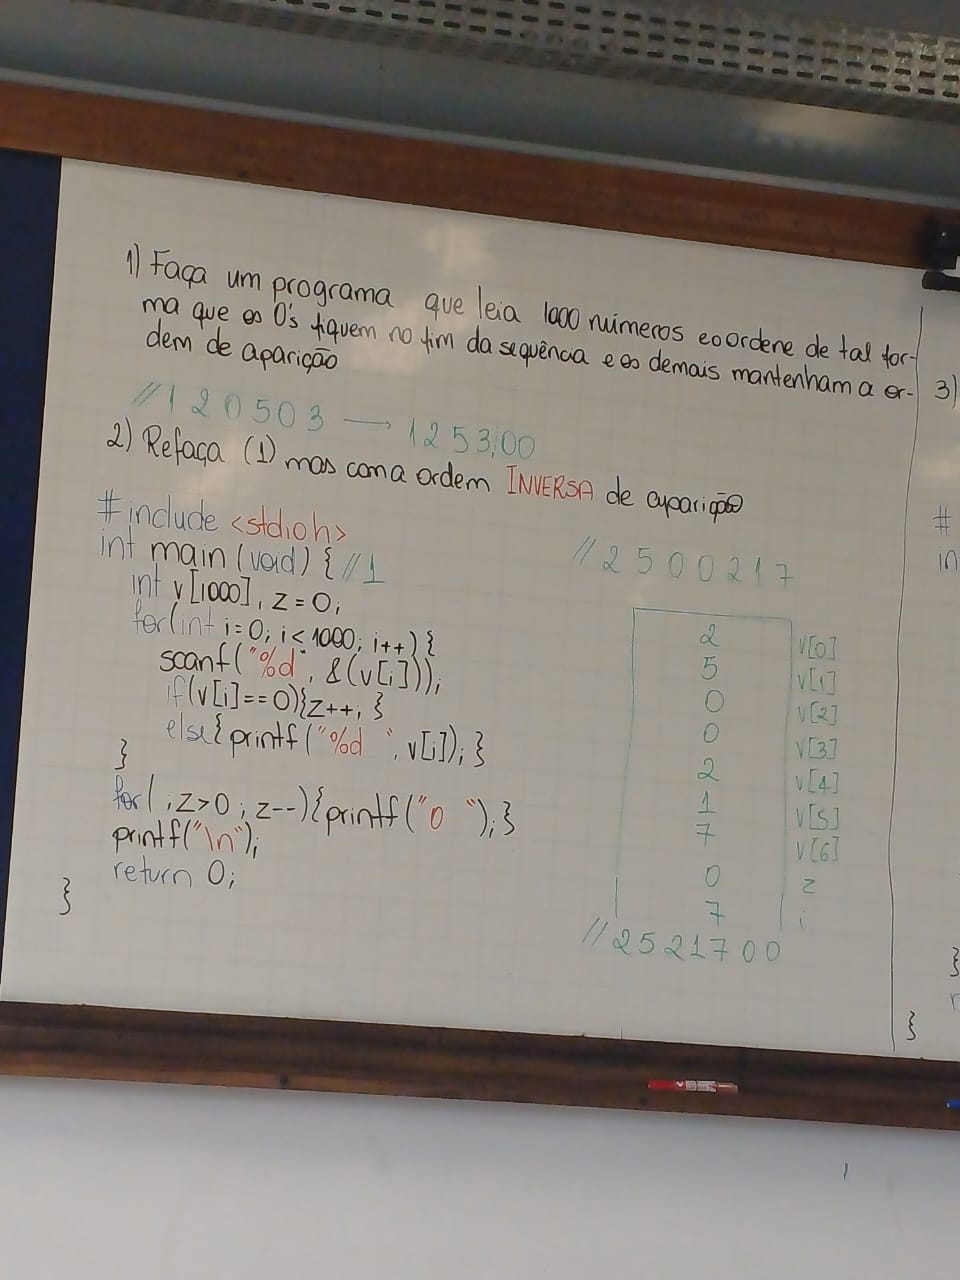 1) Faça um programa que leia 1000 números e o ordene de tal for-
ma que os 0's fiquem no fim da sequência e os demais mantenham a or-
dem de aparição
//1 2 0 5 0 3 → 1 2 5 3 0 0
2) Refaça (1) mas com a ordem INVERSA de aparição
#include <stdio.h>
int main(void) { //1
int v[1000], z=0;
for(int i=0; i<1000; i++){
scanf("%d", &(v[i]));
if(v[i]==0){z++; }
else{printf("%d ", v[i]); }
}
for( ;z>0; z--){printf("0 "); }
printf("\n");
return 0;
}
//2 5 0 0 2 1 7
2 v[0]
5 v[1]
0 v[2]
0 v[3]
2 v[4]
1 v[5]
7 v[6]
0 z
7 i
//2 5 2 1 7 0 0
3)
#
in
}
r
}